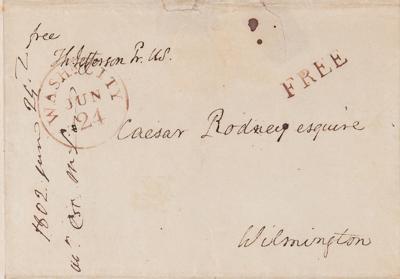 free
Th: Jefferson Pr. US.
WASH. CITY
JUN
24
FREE
Caesar Rodney esquire
Wilmington
1802 June 24